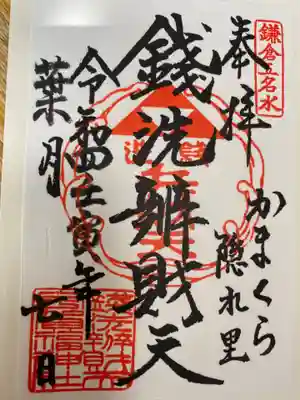 鎌倉五名水
奉拝
かまくら
隠れ里
銭洗辧財天
令和四壬寅年
葉月
七日